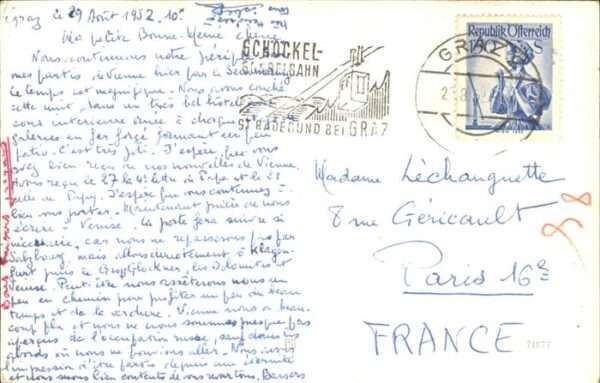 Graz le 29 Août 1952, 10h
Ma petite Bonne-Maman chérie
Nous continuons notre périple. Nous sommes
partis de Vienne hier par le Semmering
le temps est magnifique. Nous avons couché
cette nuit, dans un très bel hôtel
cour intérieure ornée à chaque
galeries en fer forgé formant un peu
patio. C'est très joli. J'espère que vous
avez bien reçu nos nouvelles de Vienne.
Avons reçu le 27 la lettre de Papa et le 28
celle de J'espère que vous continuez à
bien vous porter. Maintenant prière de nous
écrire à Venise. La poste fera suivre si
nécessaire, car nous ne repasserons pas par
Salzbourg, mais directement à Klagen-
furt puis le Gross Glockner, les Dolomites et
Venise. Peut-être nous arrêterons nous un
peu en chemin pour profiter un peu du beau
temps et de la verdure. Vienne nous a beau-
coup plu et nous ne nous sommes presque pas
aperçus de l'occupation russe, sauf dans les
abords où nous ne pouvions aller. Nous avons
l'impression d'être partis depuis une éternité
et nous serons bien contents de vous revoir tous, Baisers
Bons baisers
SCHÖCKEL-
SEILBAHN
ST. RADEGUND BEI GRAZ
GRAZ
Republik Österreich
S
Madame Léchanguette
8 rue Géricault
Paris 16e
FRANCE